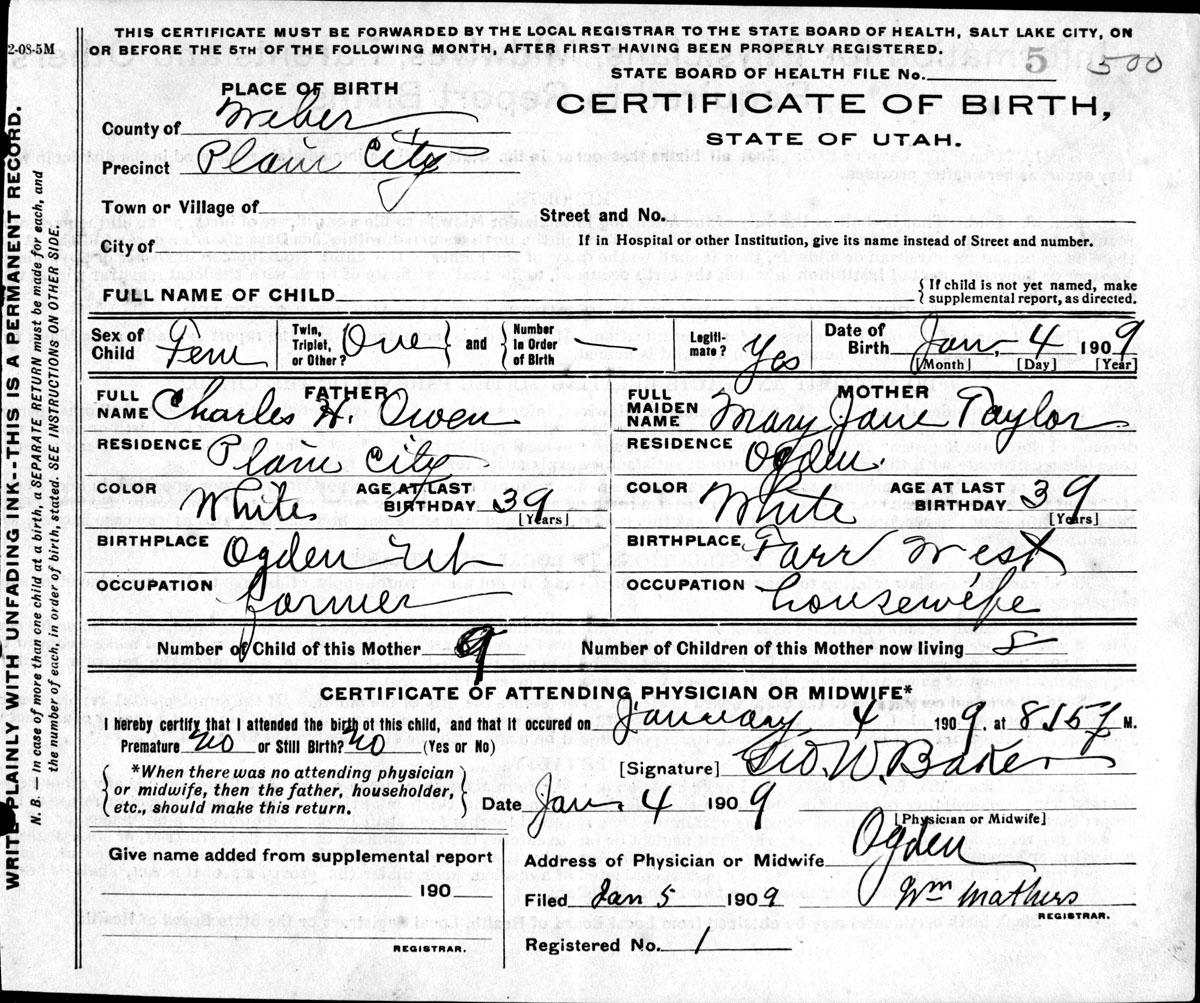 THIS CERTIFICATE MUST BE FORWARDED BY THE LOCAL REGISTRAR TO THE STATE BOARD OF HEALTH, SALT LAKE CITY, ON
OR BEFORE THE 5TH OF THE FOLLOWING MONTH, AFTER FIRST HAVING BEEN PROPERLY REGISTERED.
2-08-5M
5 500
STATE BOARD OF HEALTH FILE No.
PLACE OF BIRTH
CERTIFICATE OF BIRTH,
STATE OF UTAH.
County of Weber
Precinct Plain City
Town or Village of
Street and No.
City of
If in Hospital or other Institution, give its name instead of Street and number.
FULL NAME OF CHILD
{ If child is not yet named, make
supplemental report, as directed.
Sex of Child Fem
Twin, Triplet, or Other? One } and { Number in Order of Birth -
Legiti-mate? Yes
Date of Birth Jan, 4 1909
[Month] [Day] [Year]
FATHER
FULL NAME Charles H. Owen
MOTHER
FULL MAIDEN NAME Mary Jane Taylor
RESIDENCE Plain City
RESIDENCE Ogden
COLOR White AGE AT LAST BIRTHDAY 39 [Years]
COLOR White AGE AT LAST BIRTHDAY 39 [Years]
BIRTHPLACE Ogden Ut
BIRTHPLACE Farr West
OCCUPATION farmer
OCCUPATION housewife
Number of Child of this Mother 9
Number of Children of this Mother now living 8
CERTIFICATE OF ATTENDING PHYSICIAN OR MIDWIFE*
I hereby certify that I attended the birth of this child, and that it occured on January 4 1909 at 815 M.
Premature? no or Still Birth? no (Yes or No)
{ *When there was no attending physician
or midwife, then the father, householder,
etc., should make this return. }
[Signature] Geo. W. Baker
Date Jan. 4 1909
[Physician or Midwife]
Give name added from supplemental report
190
REGISTRAR.
Address of Physician or Midwife Ogden
Filed Jan 5 1909 Wm Mathers
REGISTRAR.
Registered No. 1
WRITE PLAINLY WITH UNFADING INK--THIS IS A PERMANENT RECORD.
N. B. — In case of more than one child at a birth, a SEPARATE RETURN must be made for each, and
the number of each, in order of birth, stated. SEE INSTRUCTIONS ON OTHER SIDE.